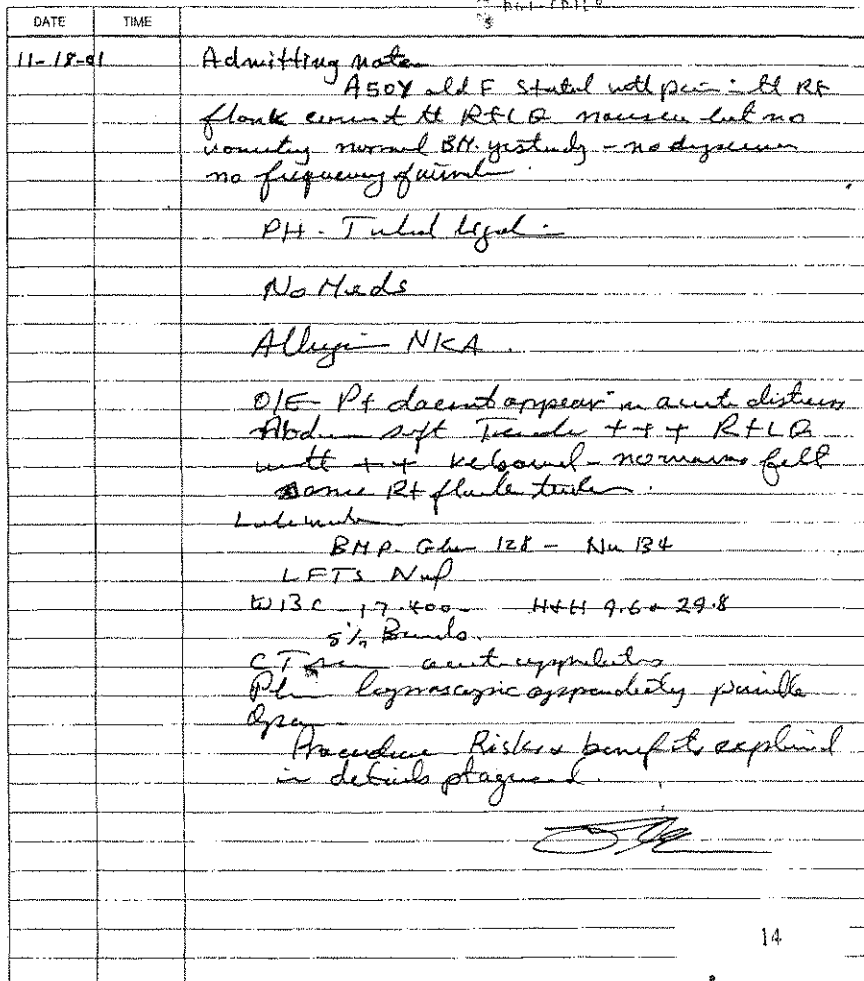 DATE TIME
11-18-01 Admitting note
A 50Y old F started with pain in the Rt
flank current the Rt LQ nausea but no
vomiting normal BM. yesterday - no dysuria
no frequency of urine.
PH - Tubal ligation
No Meds
Allergies NKA.
O/E - Pt doesn't appear in acute distress
Abdomen soft Tender +++ Rt LQ
with ++ rebound - no mass felt
some Rt flank tender.
Labs
BMP - Glu 128 - Na 134
LFTs
WBC 17.400 - H+H 9.6 & 29.8
5% Bands.
CT acute appendicitis
Plan laparoscopic appendectomy possible
Open
Procedure Risks & benefits explained
in details pt agreed.
14